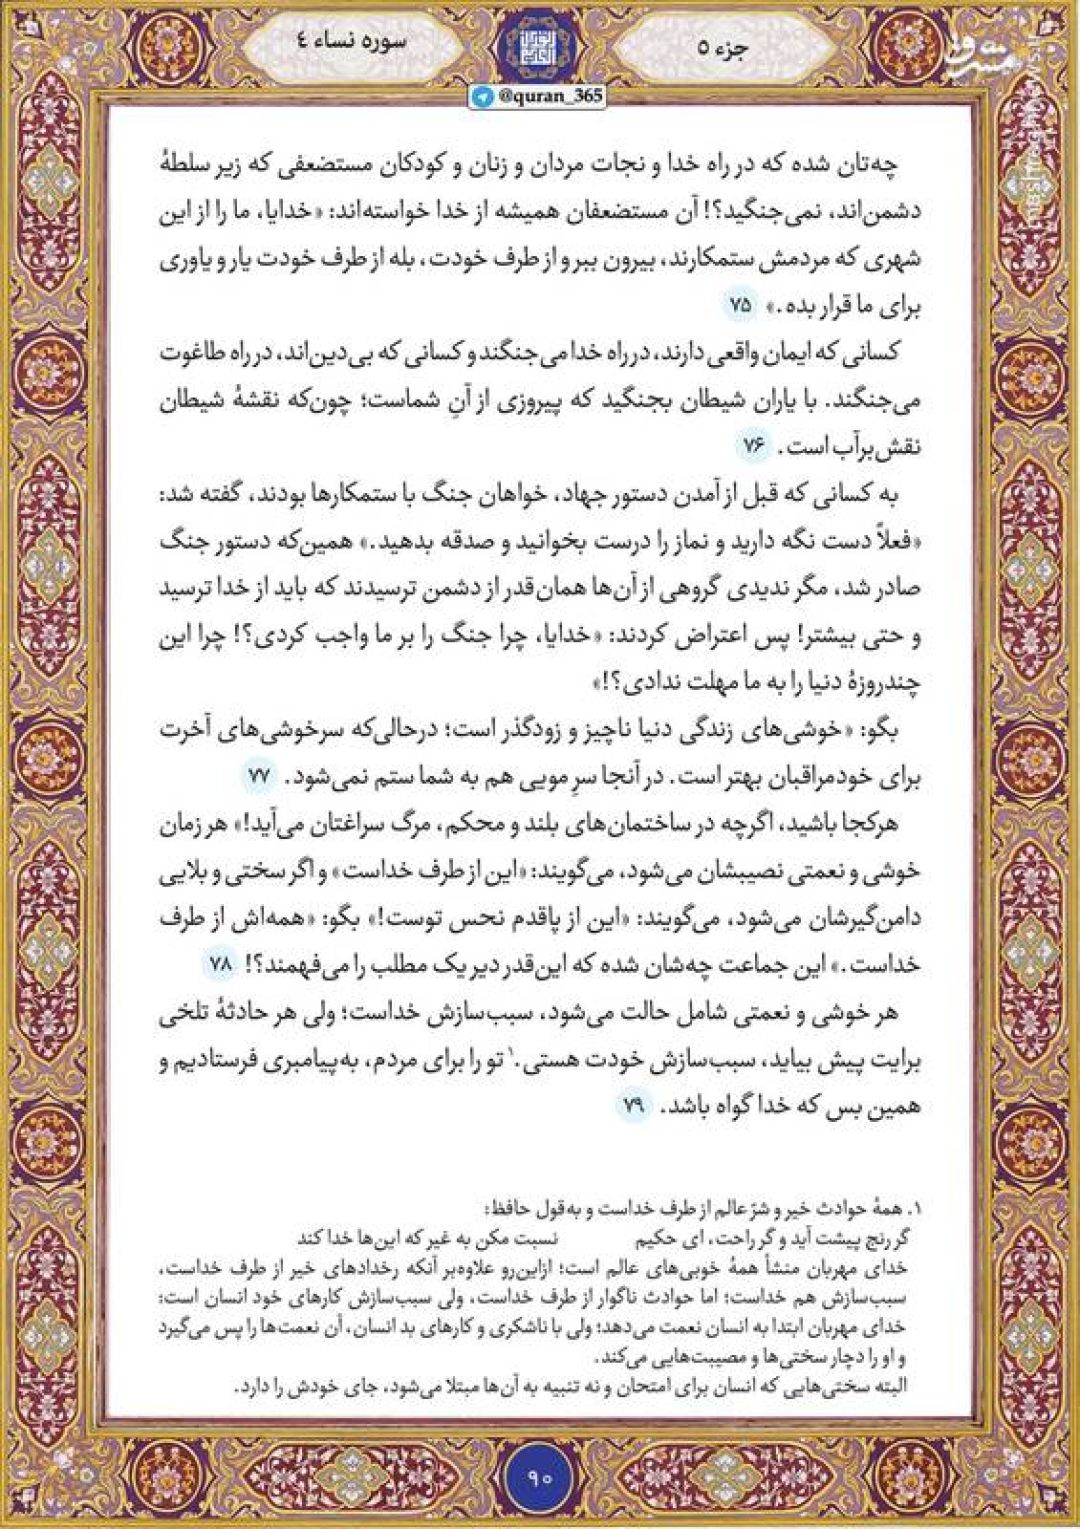 جزء ۵
سوره نساء ٤
مشرق
mashreghnews.ir
@quran_365
چه‌تان شده که در راه خدا و نجات مردان و زنان و کودکان مستضعفی که زیر سلطهٔ
دشمن‌اند، نمی‌جنگید؟! آن مستضعفان همیشه از خدا خواسته‌اند: «خدایا، ما را از این
شهری که مردمش ستمکارند، بیرون ببر و از طرف خودت، بله از طرف خودت یار و یاوری
برای ما قرار بده.» ۷۵
کسانی که ایمان واقعی دارند، در راه خدا می‌جنگند و کسانی که بی‌دین‌اند، در راه طاغوت
می‌جنگند. با یاران شیطان بجنگید که پیروزی از آنِ شماست؛ چون‌که نقشهٔ شیطان
نقش‌برآب است. ۷۶
به کسانی که قبل از آمدن دستور جهاد، خواهان جنگ با ستمکارها بودند، گفته شد:
«فعلاً دست نگه دارید و نماز را درست بخوانید و صدقه بدهید.» همین‌که دستور جنگ
صادر شد، مگر ندیدی گروهی از آن‌ها همان‌قدر از دشمن ترسیدند که باید از خدا ترسید
و حتی بیشتر! پس اعتراض کردند: «خدایا، چرا جنگ را بر ما واجب کردی؟! چرا این
چندروزهٔ دنیا را به ما مهلت ندادی؟!»
بگو: «خوشی‌های زندگی دنیا ناچیز و زودگذر است؛ درحالی‌که سرخوشی‌های آخرت
برای خودمراقبان بهتر است. در آنجا سرِ مویی هم به شما ستم نمی‌شود. ۷۷
هرکجا باشید، اگرچه در ساختمان‌های بلند و محکم، مرگ سراغتان می‌آید!» هر زمان
خوشی و نعمتی نصیبشان می‌شود، می‌گویند: «این از طرف خداست» و اگر سختی و بلایی
دامن‌گیرشان می‌شود، می‌گویند: «این از پاقدم نحس توست!» بگو: «همه‌اش از طرف
خداست.» این جماعت چه‌شان شده که این‌قدر دیر یک مطلب را می‌فهمند؟! ۷۸
هر خوشی و نعمتی شامل حالت می‌شود، سبب‌سازش خداست؛ ولی هر حادثهٔ تلخی
برایت پیش بیاید، سبب‌سازش خودت هستی.۱ تو را برای مردم، به‌پیامبری فرستادیم و
همین بس که خدا گواه باشد. ۷۹
۱. همهٔ حوادث خیر و شرّ عالم از طرف خداست و به‌قول حافظ:
گر رنج پیشت آید و گر راحت، ای حکیم نسبت مکن به غیر که این‌ها خدا کند
خدای مهربان منشأ همهٔ خوبی‌های عالم است؛ ازاین‌رو علاوه‌بر آنکه رخدادهای خیر از طرف خداست،
سبب‌سازش هم خداست؛ اما حوادث ناگوار از طرف خداست، ولی سبب‌سازش کارهای خود انسان است؛
خدای مهربان ابتدا به انسان نعمت می‌دهد؛ ولی با ناشکری و کارهای بد انسان، آن نعمت‌ها را پس می‌گیرد
و او را دچار سختی‌ها و مصیبت‌هایی می‌کند.
البته سختی‌هایی که انسان برای امتحان و نه تنبیه به آن‌ها مبتلا می‌شود، جای خودش را دارد.
۹۰